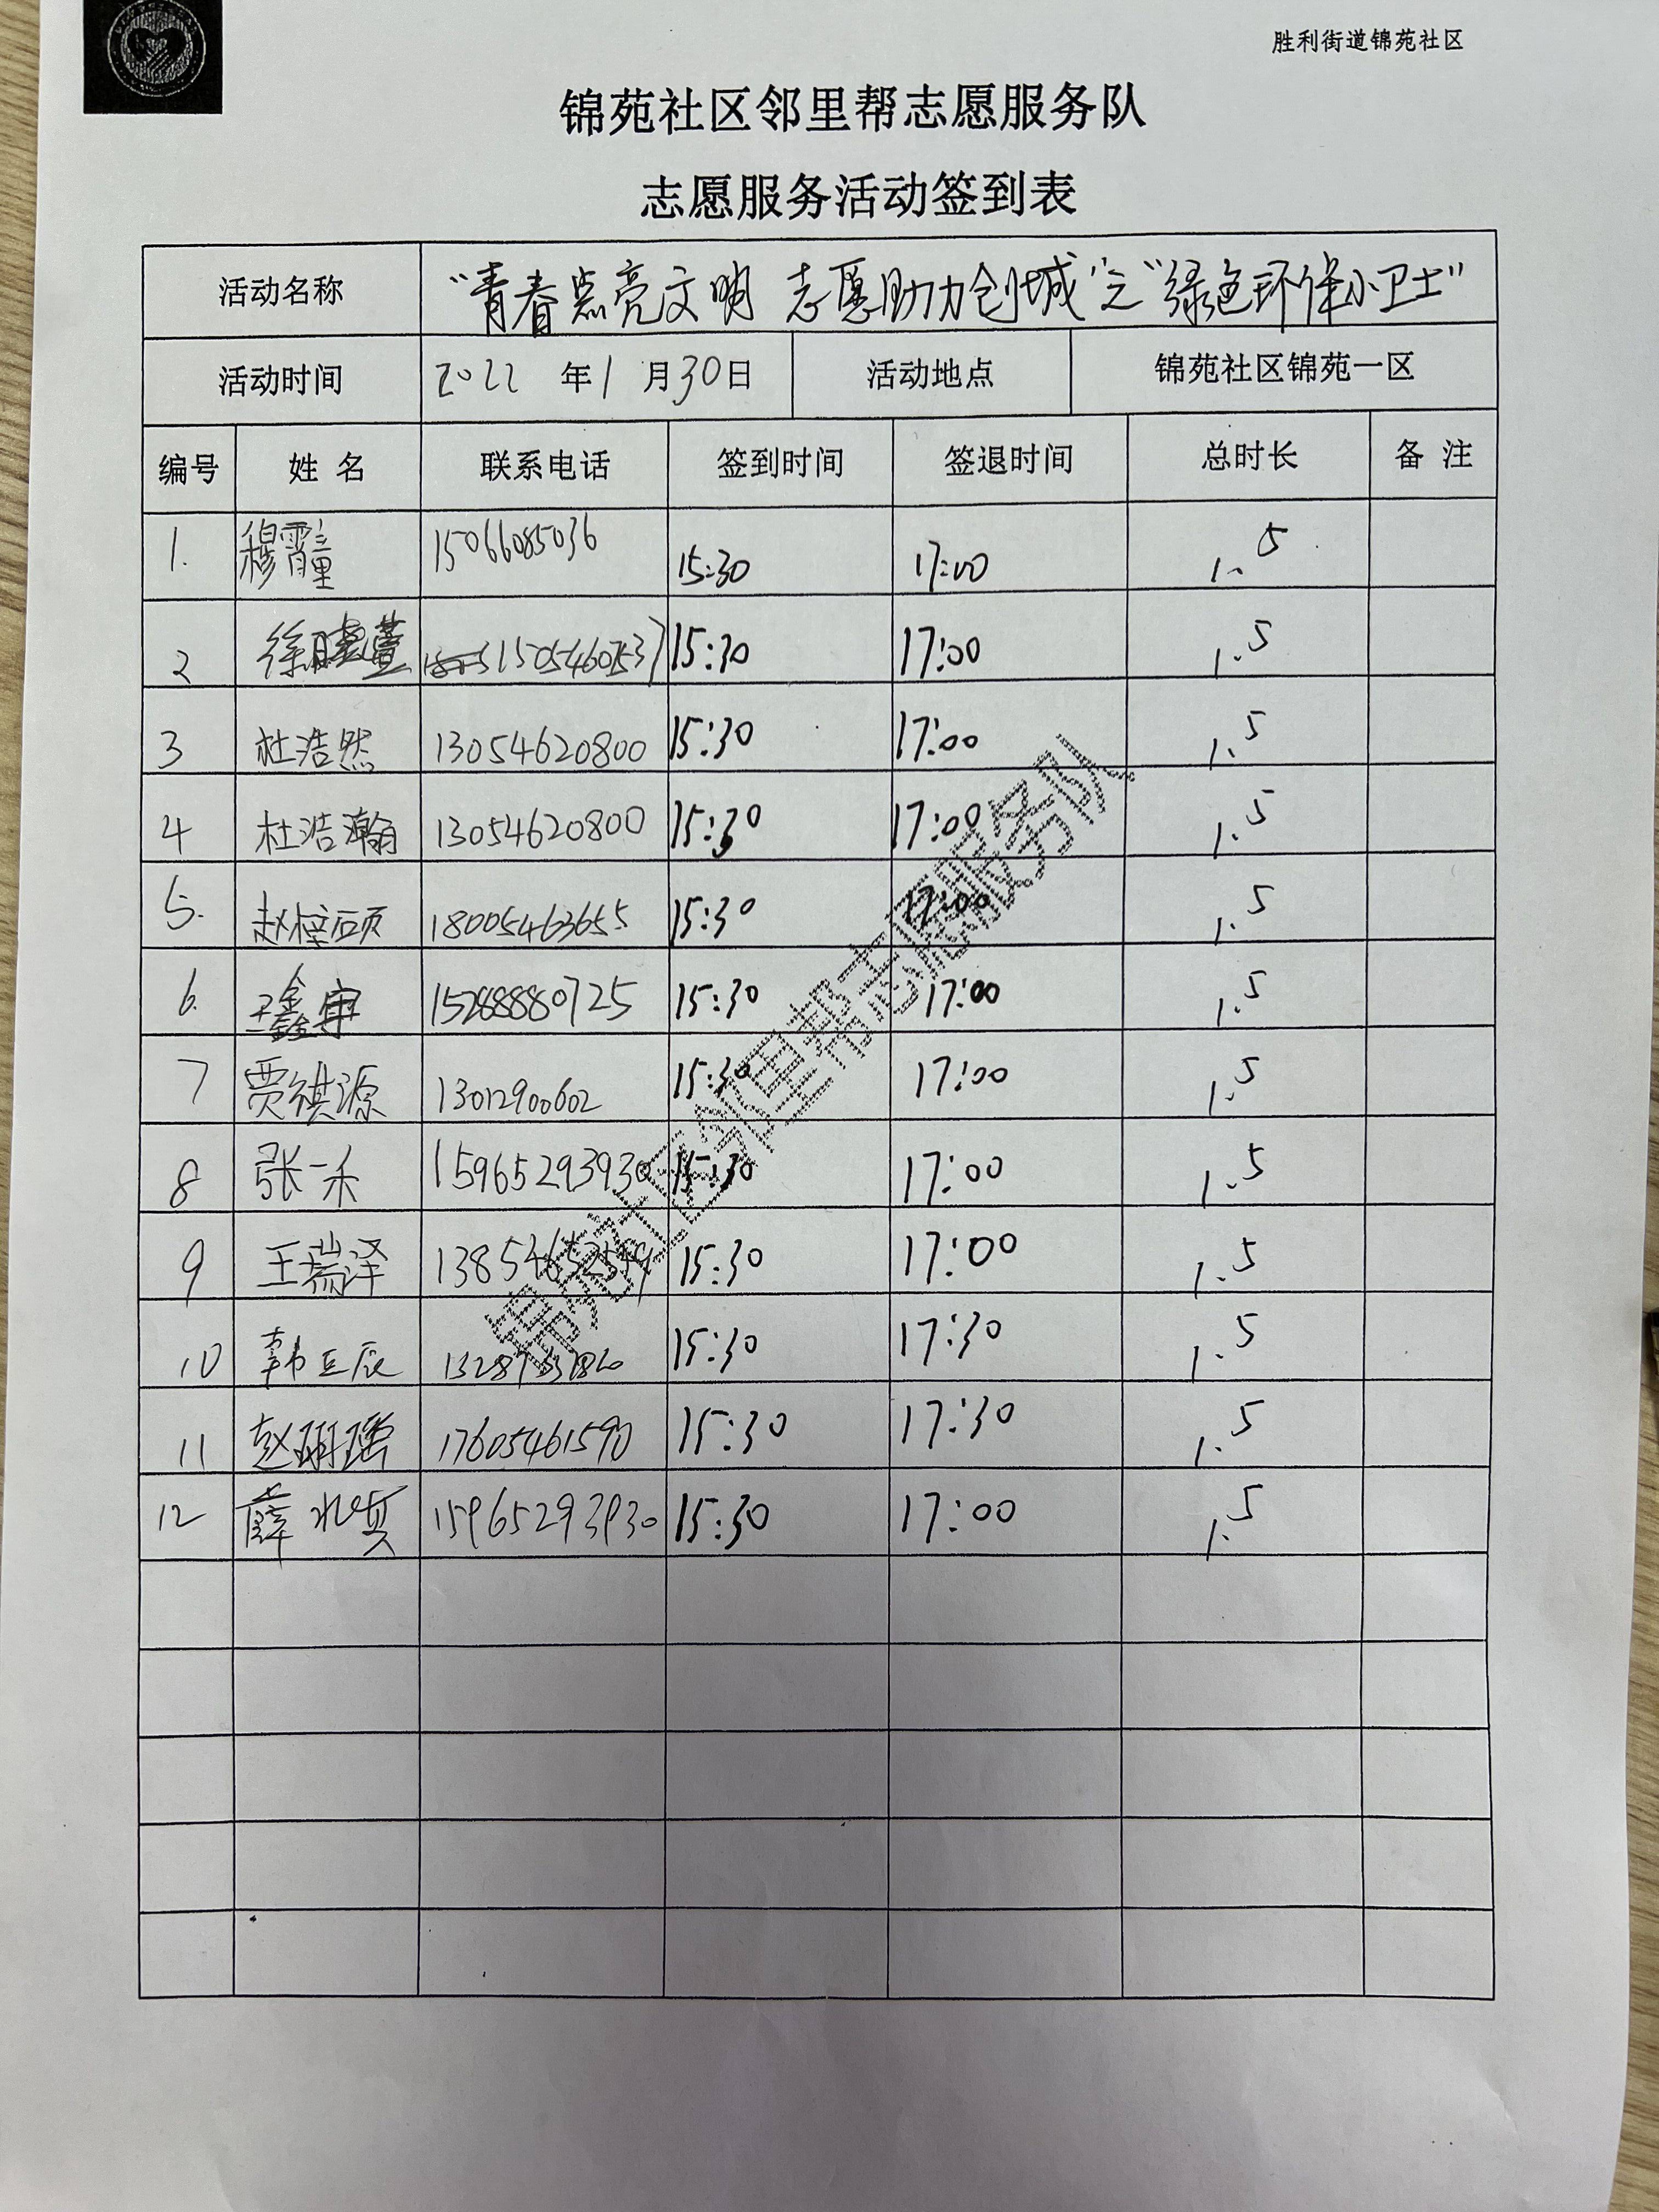 胜利街道锦苑社区
锦苑社区邻里帮志愿服务队
志愿服务活动签到表
活动名称 "青春点亮文明 志愿助力创城"之"绿色环保小卫士"
活动时间 2022 年 1 月 30 日 活动地点 锦苑社区锦苑一区
编号 姓 名 联系电话 签到时间 签退时间 总时长 备 注
1. 穆霄童 15066085036 15:30 17:00 1.5
2 徐晓萱 15054607537 15:30 17:00 1.5
3 杜浩然 13054620800 15:30 17:00 1.5
4 杜浩瀚 13054620800 15:30 17:00 1.5
5. 赵梓硕 18005463655 15:30 17:00 1.5
6. 王鑫宇 15288880725 15:30 17:00 1.5
7 贾祺源 13012900602 15:30 17:00 1.5
8 张一禾 15965293930 15:30 17:00 1.5
9 王瑞泽 15:30 17:00 1.5
10 韩丘辰 15:30 17:30 1.5
11 赵珊瑶 17605461590 15:30 17:30 1.5
12 薛 15965293930 15:30 17:00 1.5
锦苑社区邻里帮志愿服务队